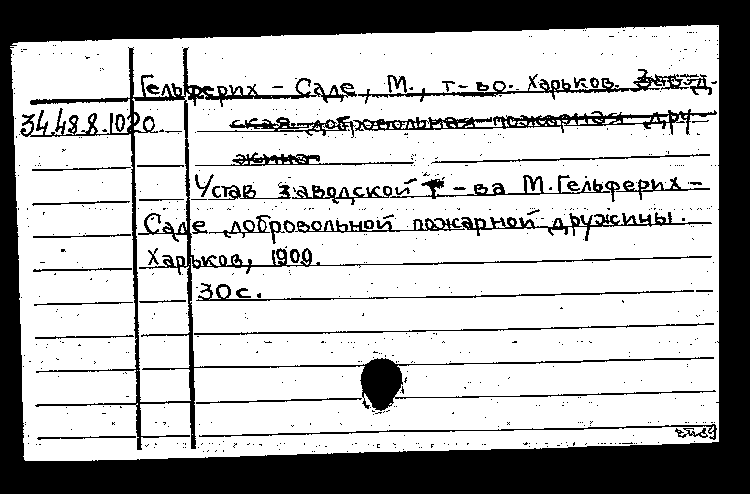 Гельферих - Саде, М., т-во. Харьков. Завод-
34.48.8.1020.
ская добровольная пожарная дру-
жина
Устав заводской т-ва М. Гельферих -
Саде добровольной пожарной дружины.
Харьков, 1909.
30 с.